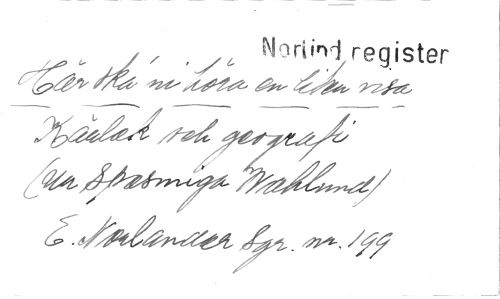 Norlind register
Här ska' ni höra en liten visa
Kärlek och geografi
(ur Spasmiga Wahlund)
E. Norlander Sgr. nr. 199